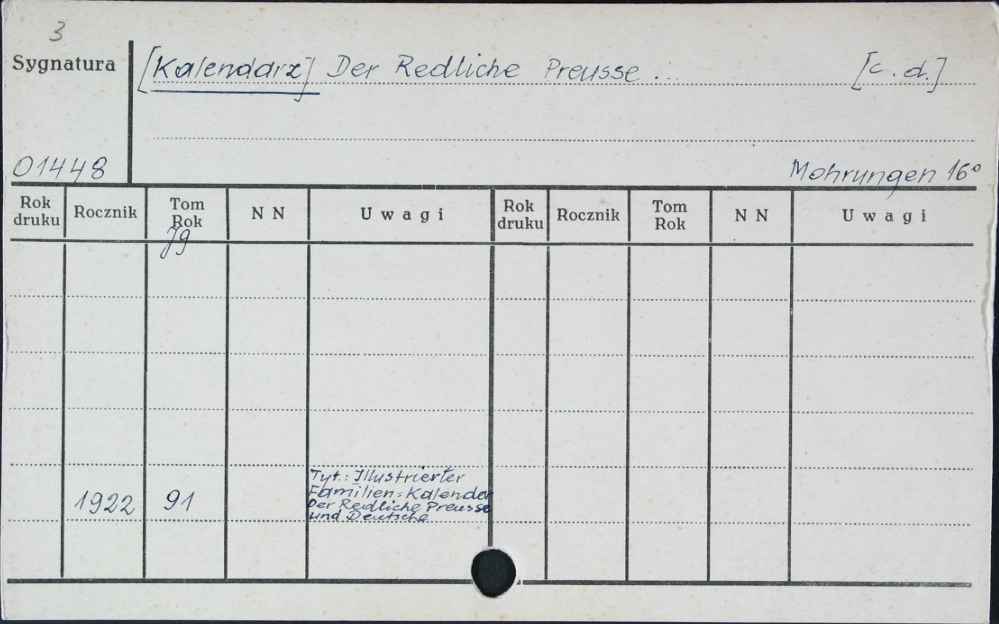 3
Sygnatura [Kalendarz] Der Redliche Preusse... [c.d.]
01448 Mohrungen 16°
Rok druku Rocznik Tom Rok NN Uwagi Rok druku Rocznik Tom Rok NN Uwagi
Jg
Tyt.: Illustrierter
Familien=Kalender
1922 91 Der Redliche Preusse
und Deutsche